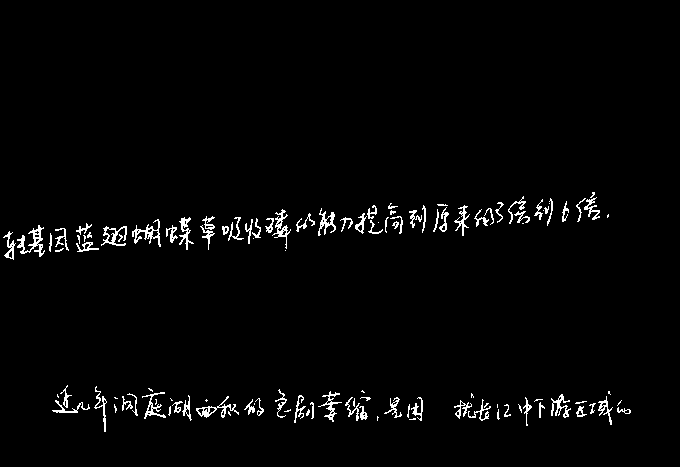 转基因蓝翅蝴蝶草吸收磷的能力提高到原来的3倍到6倍.
近几年洞庭湖面积的急剧萎缩,是困 扰长江中下游区域的